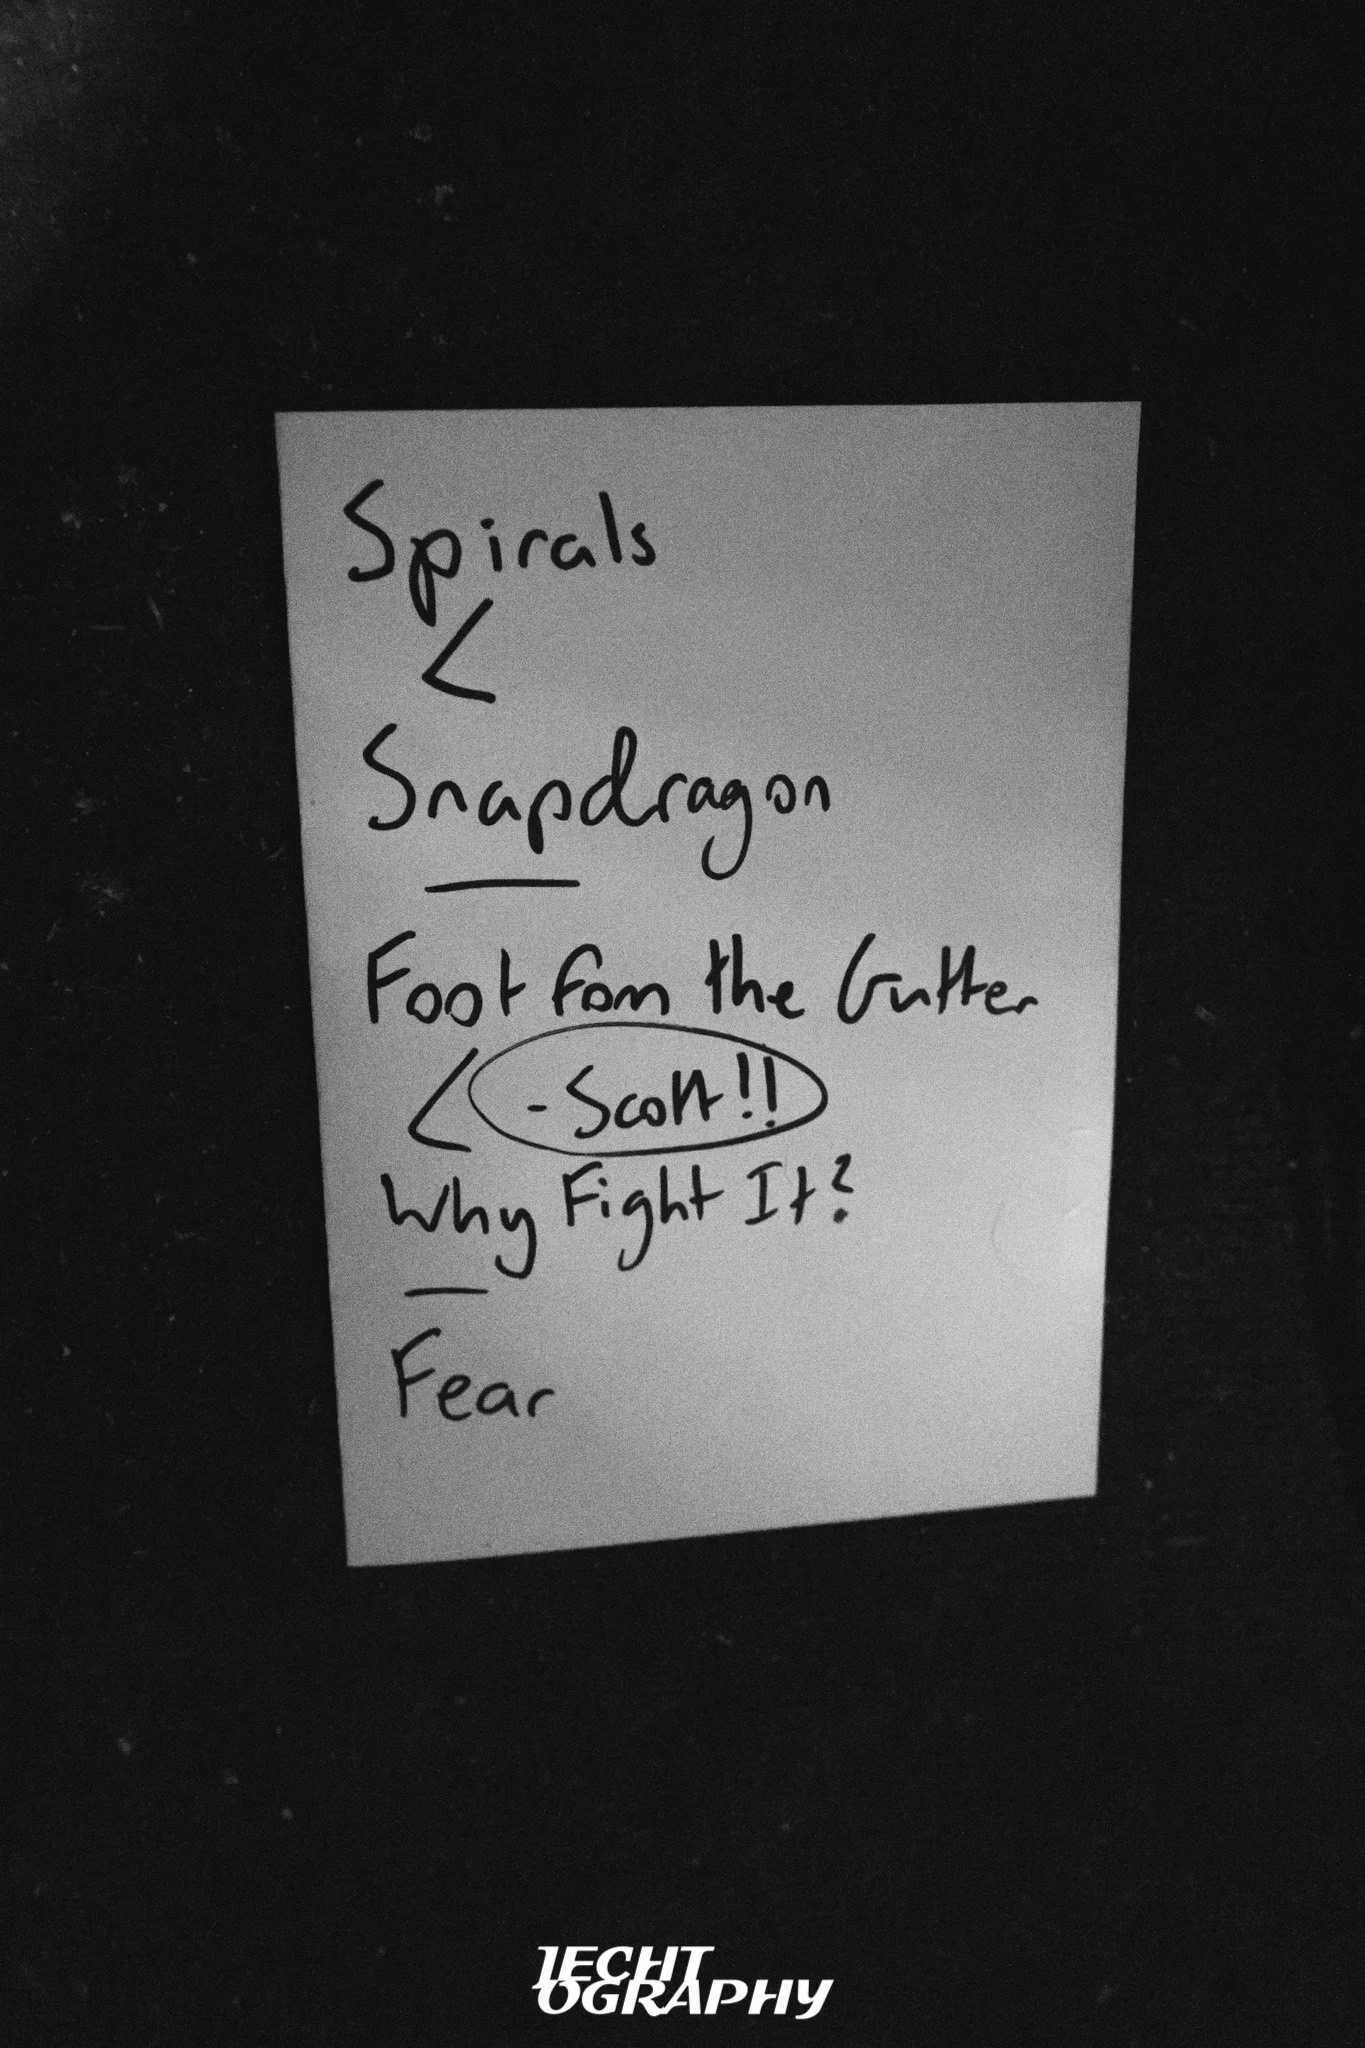 Spirals
<
Snapdragon
—
Foot fom the Gutter
< - Scott!!
Why Fight It?
—
Fear
IECHT
OGRAPHY